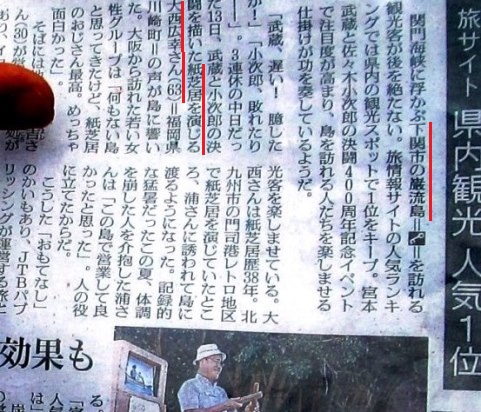 旅サイト
県内観光 人気1位
関門海峡に浮かぶ下関市の巌流島＝〓＝を訪れる
観光客が後を絶たない。旅情報サイトの人気ランキ
ングでは県内の観光スポットで1位をキープ。宮本
武蔵と佐々木小次郎の決闘400周年記念イベント
で注目度が高まり、島を訪れる人たちを楽しませる
仕掛けが功を奏しているようだ。
「武蔵、遅い！ 臆した
か！」「小次郎、敗れたり
！」。3連休の中日だっ
た13日、武蔵と小次郎の決
闘を描いた紙芝居を演じる
大西広幸さん(63)＝福岡県
川崎町＝の声が島に響い
た。大阪から訪れた若い女
性グループは「何もない島
と思ってきたけど、紙芝居
のおじさん最高。めっちゃ
面白かった」。
そばには
ん(30)が営
光客を楽しませている。大
西さんは紙芝居歴38年。北
九州市の門司港レトロ地区
で紙芝居を演じていたとこ
ろ、浦さんに誘われて島に
渡るようになった。記録的
な猛暑だったこの夏、体調
を崩した人を介抱した浦さ
んは「この島で営業して良
かったと思った」。人の役
に立てたからだ。
こうした「おもてなし」
のかいもあり、JTBパブ
リッシングが運営する旅と
効果も